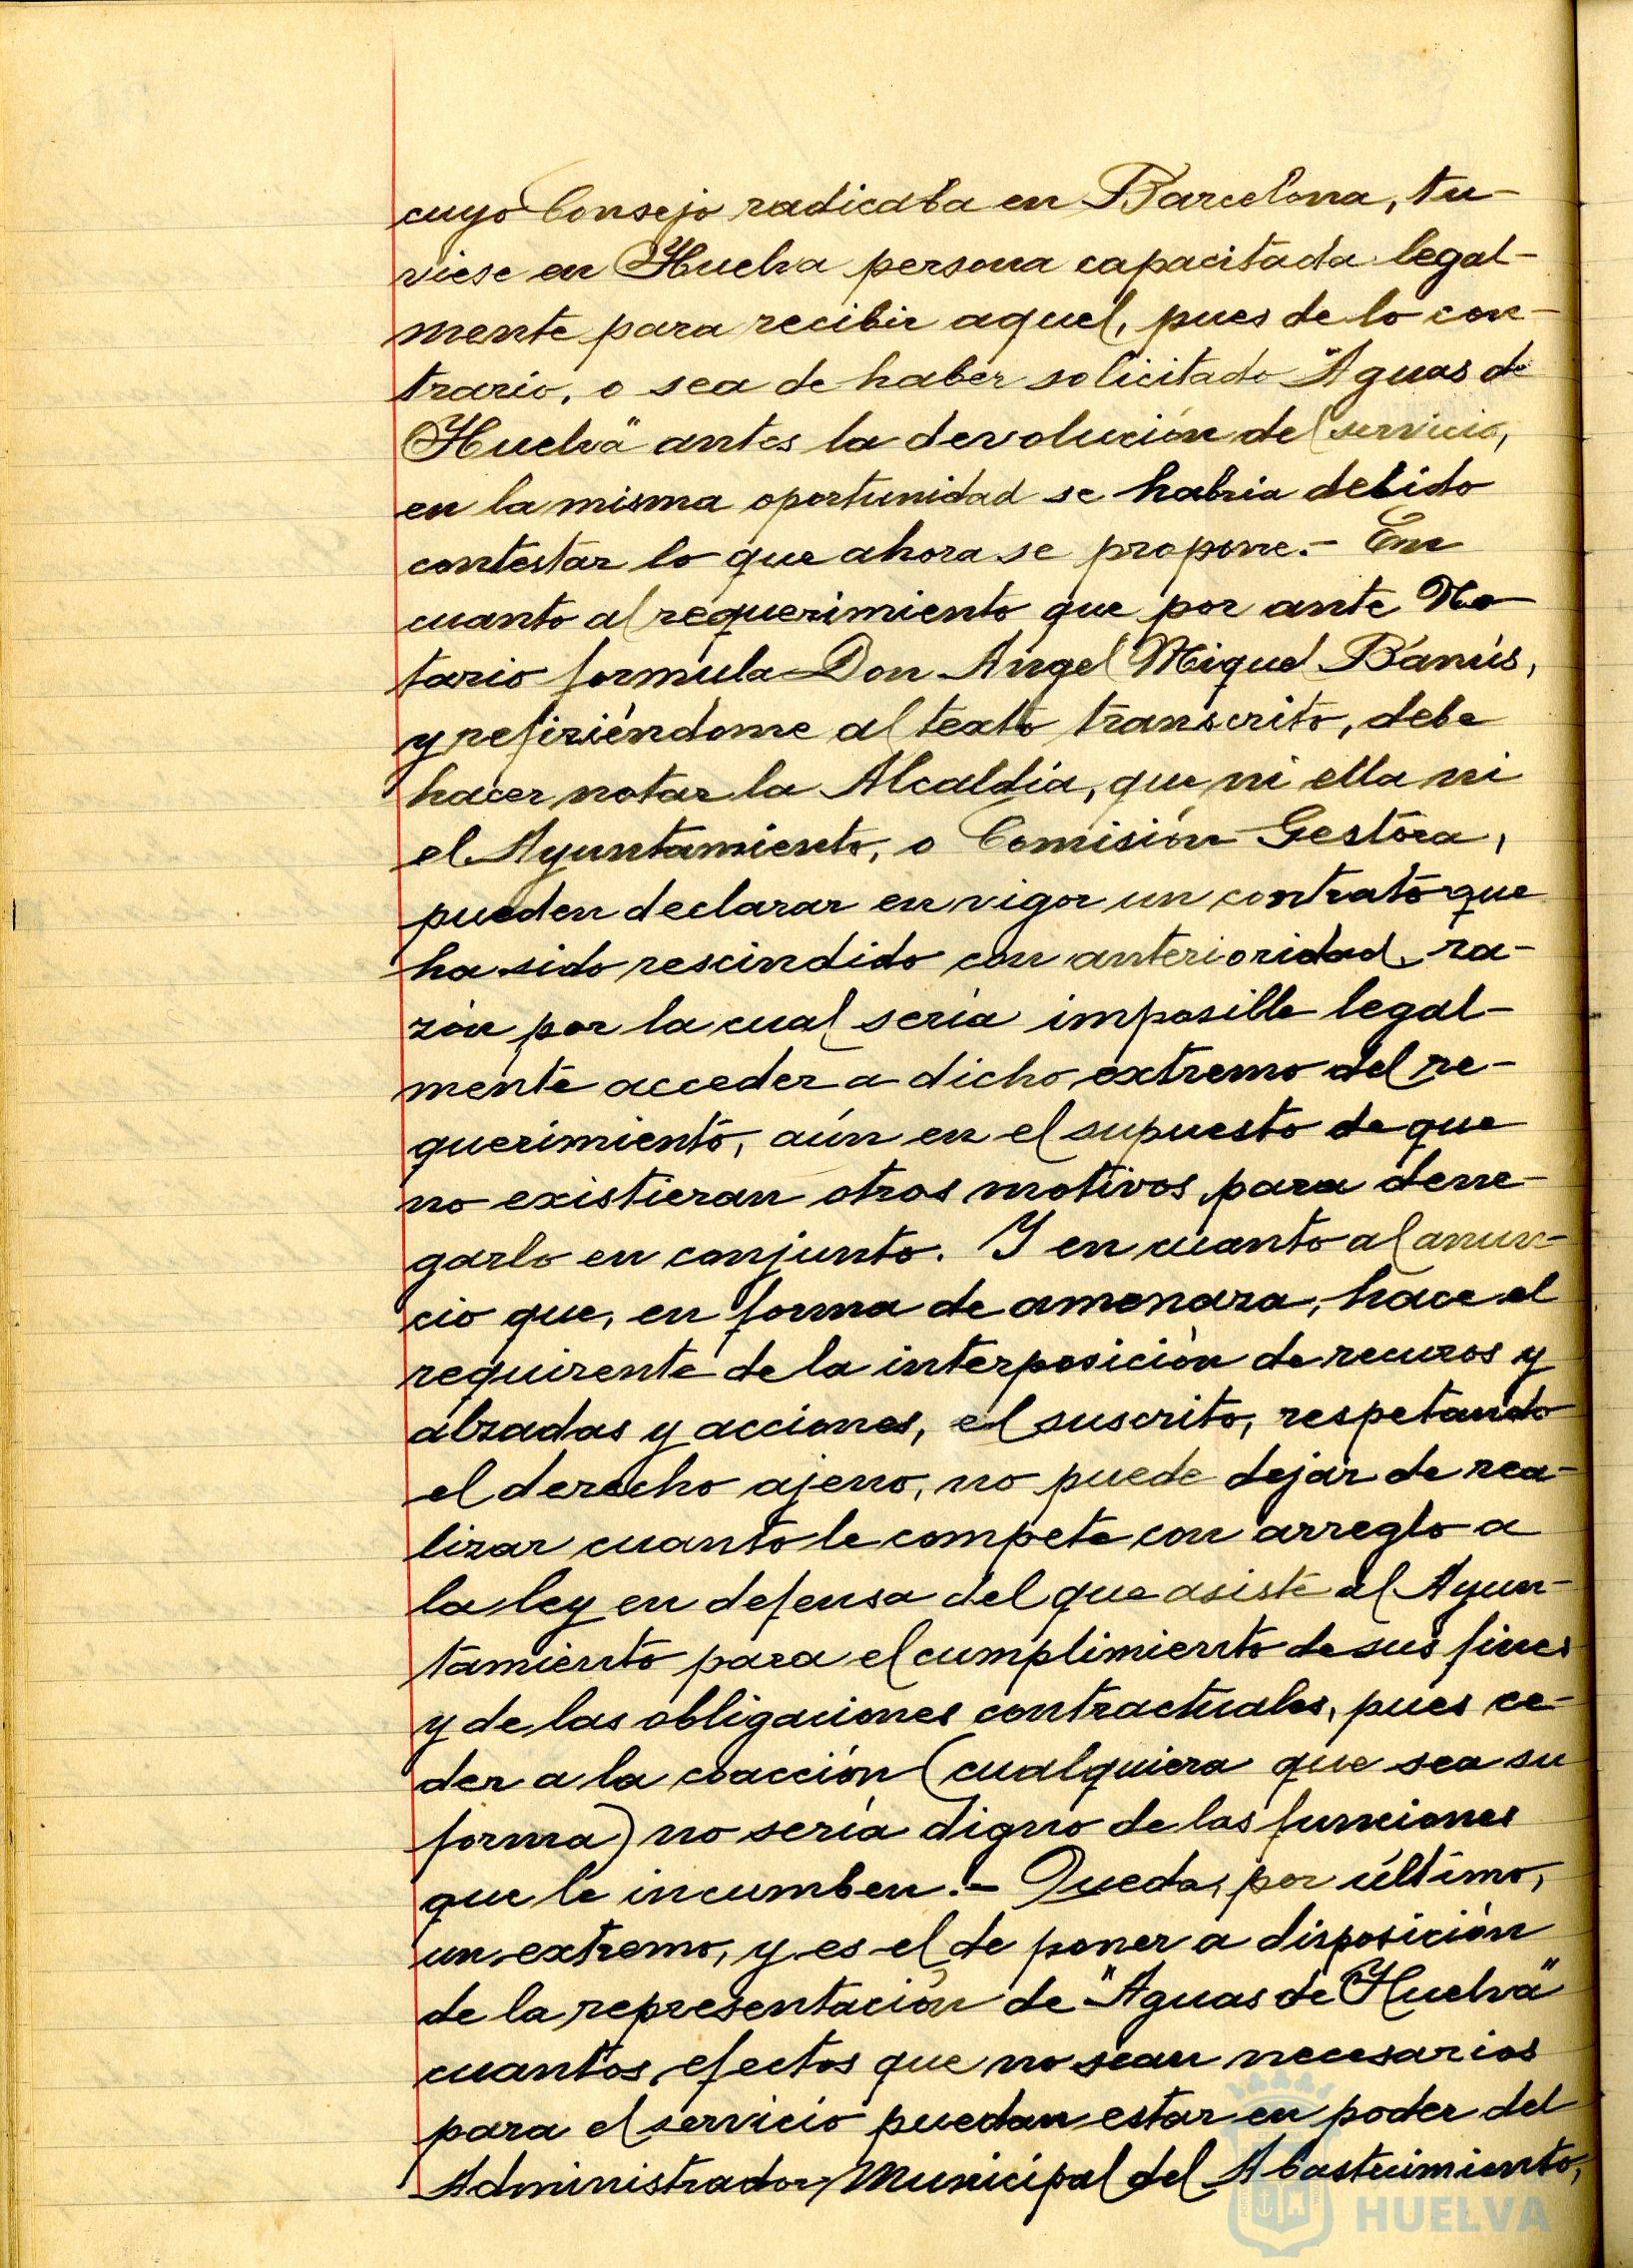 cuyo Consejo radicaba en Barcelona, tu-
viese en Huelva persona capacitada legal-
mente para recibir aquel, pues de lo con-
trario, o sea de haber solicitado "Aguas de
Huelva" antes la devolución del servicio,
en la misma oportunidad se habria debido
contestar lo que ahora se propone.- En
cuanto al requerimiento que por ante No
tario formula Don Angel Miquel Banús,
y refiriéndome al texto transcrito, debe
hacer notar la Alcaldía, que ni ella ni
el Ayuntamiento, o Comisión Gestora,
pueden declarar en vigor un contrato que
ha sido rescindido con anterioridad, ra-
zón por la cual sería imposible legal-
mente acceder a dicho extremo del re-
querimiento, aún en el supuesto de que
no existieran otros motivos para dene-
garlo en conjunto. Y en cuanto al anun-
cio que, en forma de amenaza, hace el
requirente de la interposición de recuros y
alzadas y acciones, el suscrito, respetando
el derecho ajeno, no puede dejar de rea-
lizar cuanto le compete con arreglo a
la ley en defensa del que asiste al Ayun-
tamiento para el cumplimiento de sus fines
y de las obligaciones contractuales, pues ce-
der a la coacción (cualquiera que sea su
forma) no sería digno de las funciones
que le incumben.- Queda, por último,
un extremo, y es el de poner a disposición
de la representación de "Aguas de Huelva"
cuantos efectos que no sean necesarios
para el servicio puedan estar en poder del
Administrador Municipal del Abastecimiento,
HUELVA